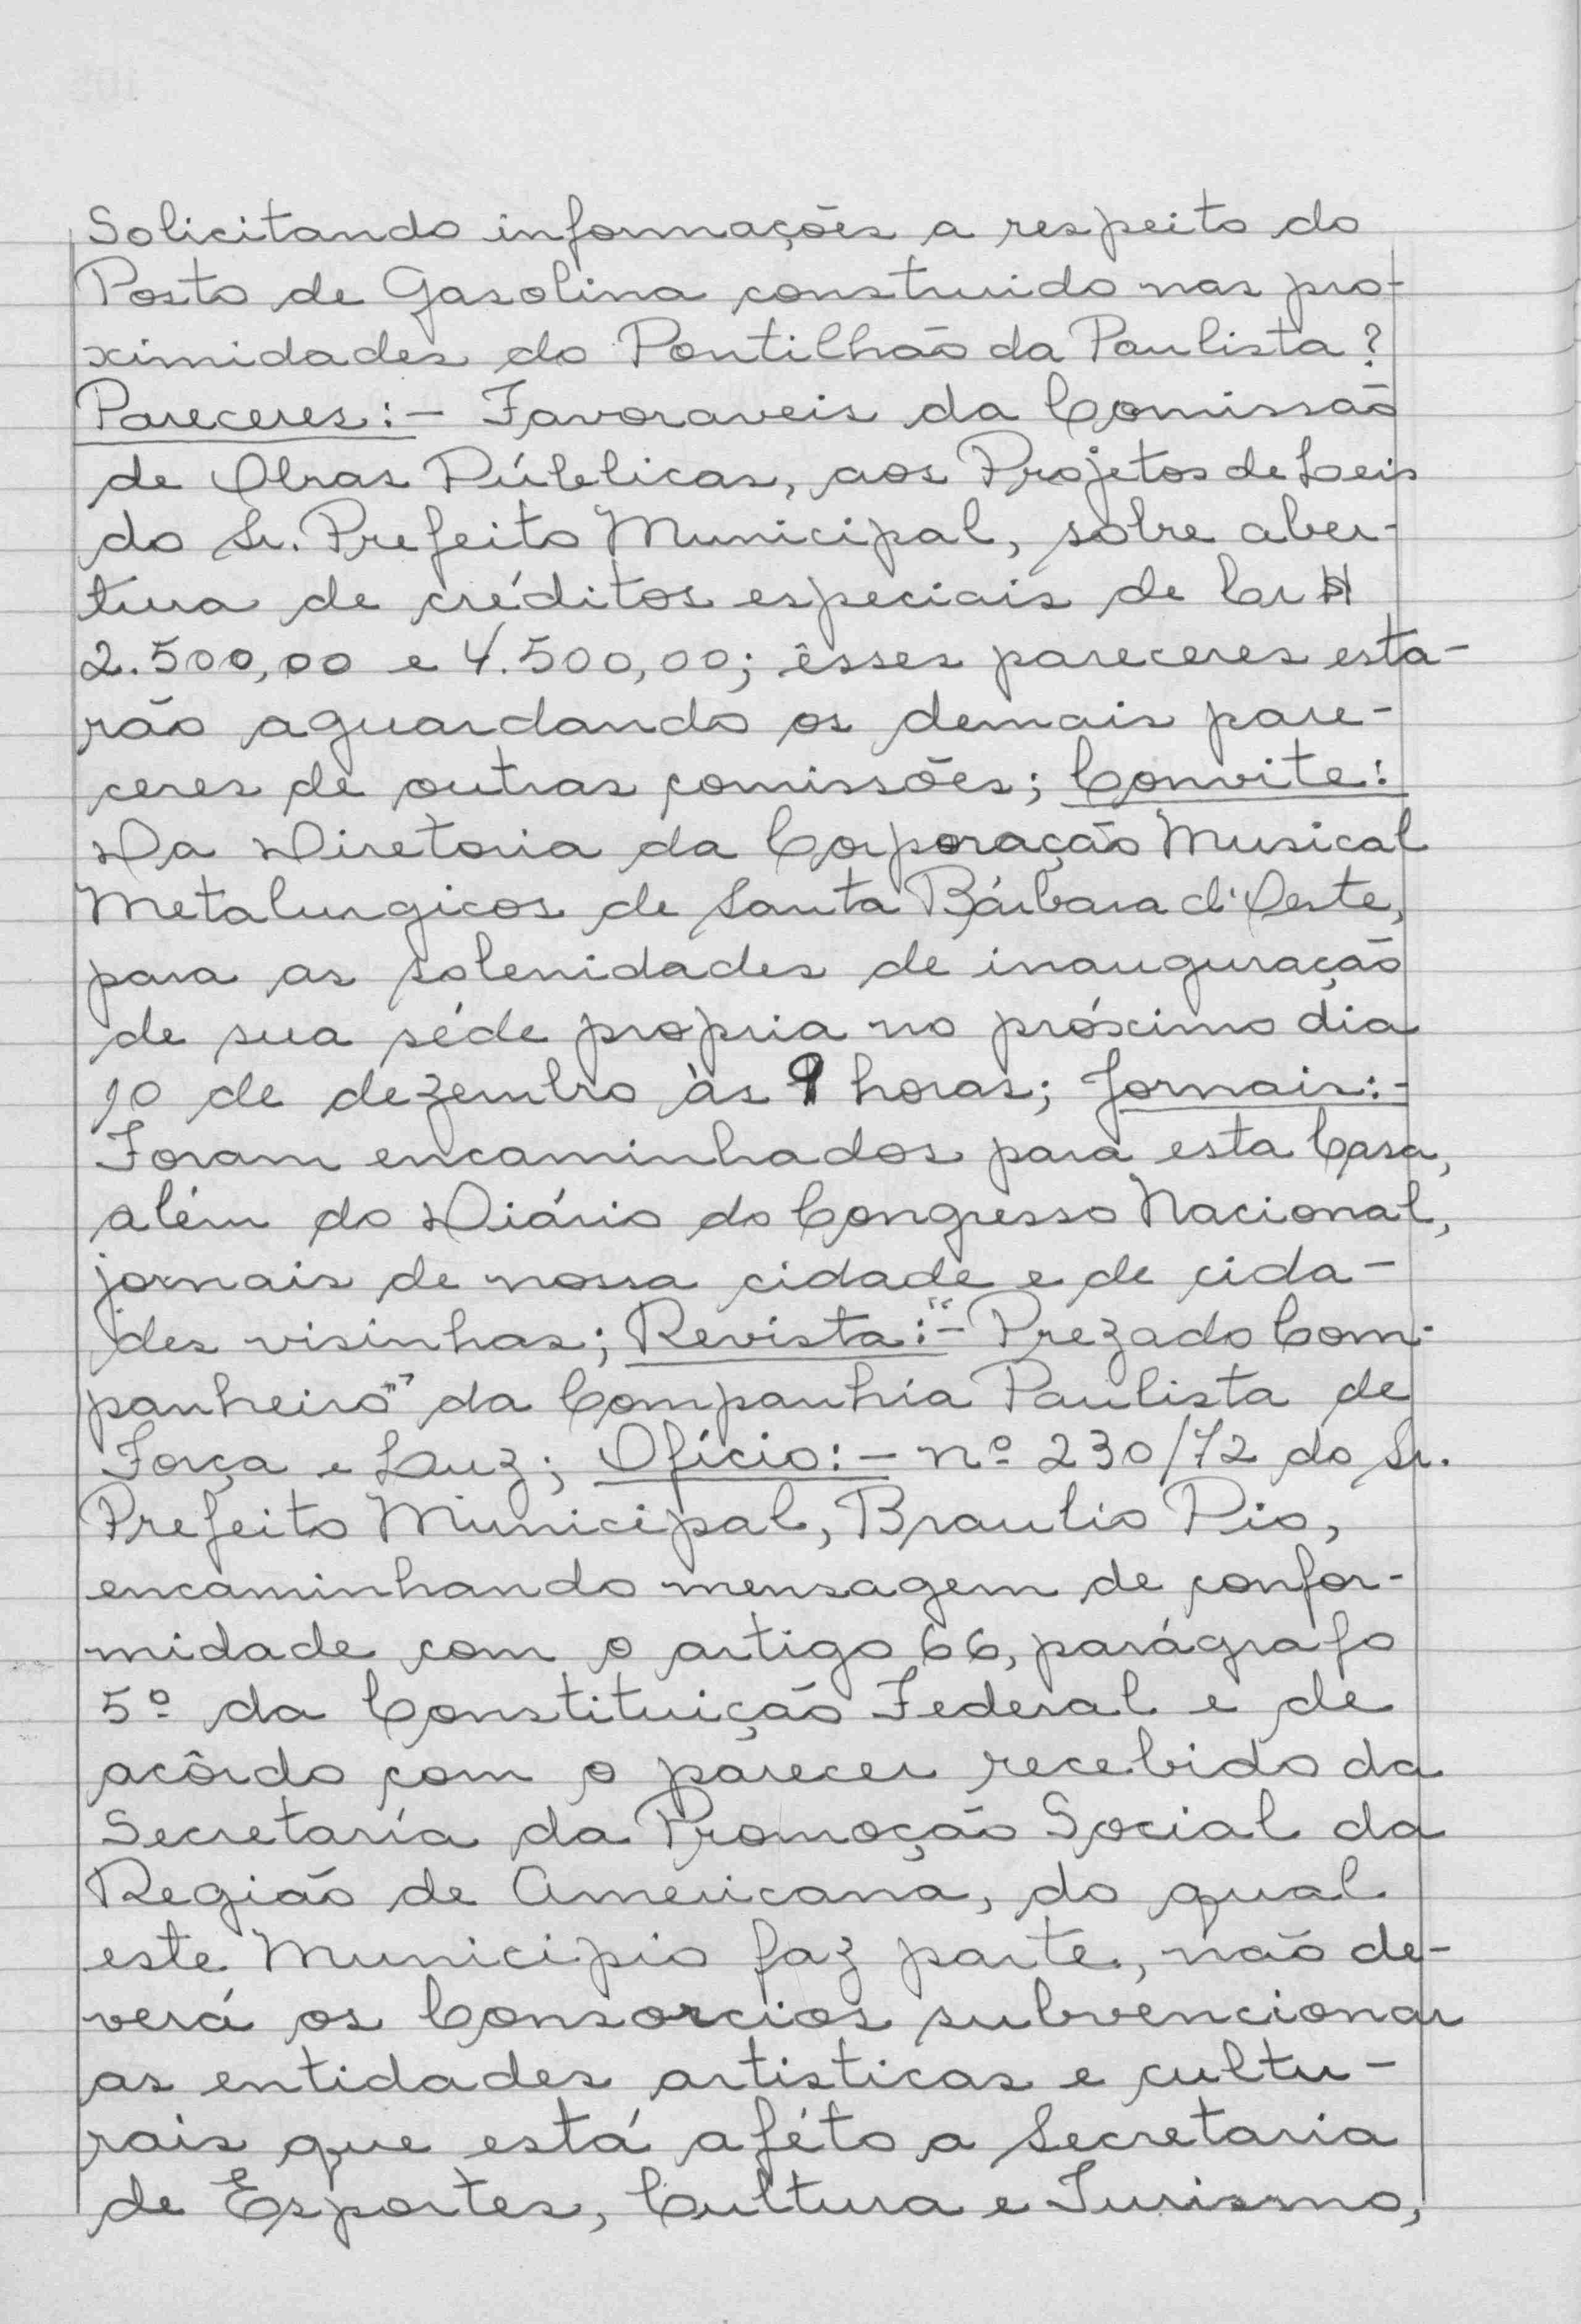 Solicitando informações a respeito do
Posto de Gasolina construido nas pro-
ximidades do Pontilhão da Paulista?
Pareceres:- Favoraveis da Comissão
de Obras Públicas, aos Projetos de Leis
do Sr. Prefeito Municipal, sôbre aber-
tura de créditos especiais de Cr$
2.500,00 e 4.500,00; êsses pareceres esta-
rão aguardando os demais pare-
ceres de outras comissões; Convite:
Da Diretoria da Corporação Musical
Metalurgicos de Santa Bárbara d'Oeste,
para as solenidades de inauguração
de sua séde propria no próximo dia
10 de dezembro às 9 horas; Jornais:-
Foram encaminhados para esta Casa,
além do Diário do Congresso Nacional,
jornais de nossa cidade e de cida-
des visinhas; Revista:- "Prezado Com-
panheiro" da Companhia Paulista de
Força e Luz; Ofício:- nº 230/72 do Sr.
Prefeito Municipal, Braulio Pio,
encaminhando mensagem de confor-
midade com o artigo 66, parágrafo
5º da Constituição Federal e de
acôrdo com o parecer recebido da
Secretaría da Promoção Social da
Região de Americana, do qual
este Municipio faz parte, não de-
verá os Consorcios subvencionar
as entidades artisticas e cultu-
rais que está aféto a Secretaria
de Esportes, Cultura e Turismo,